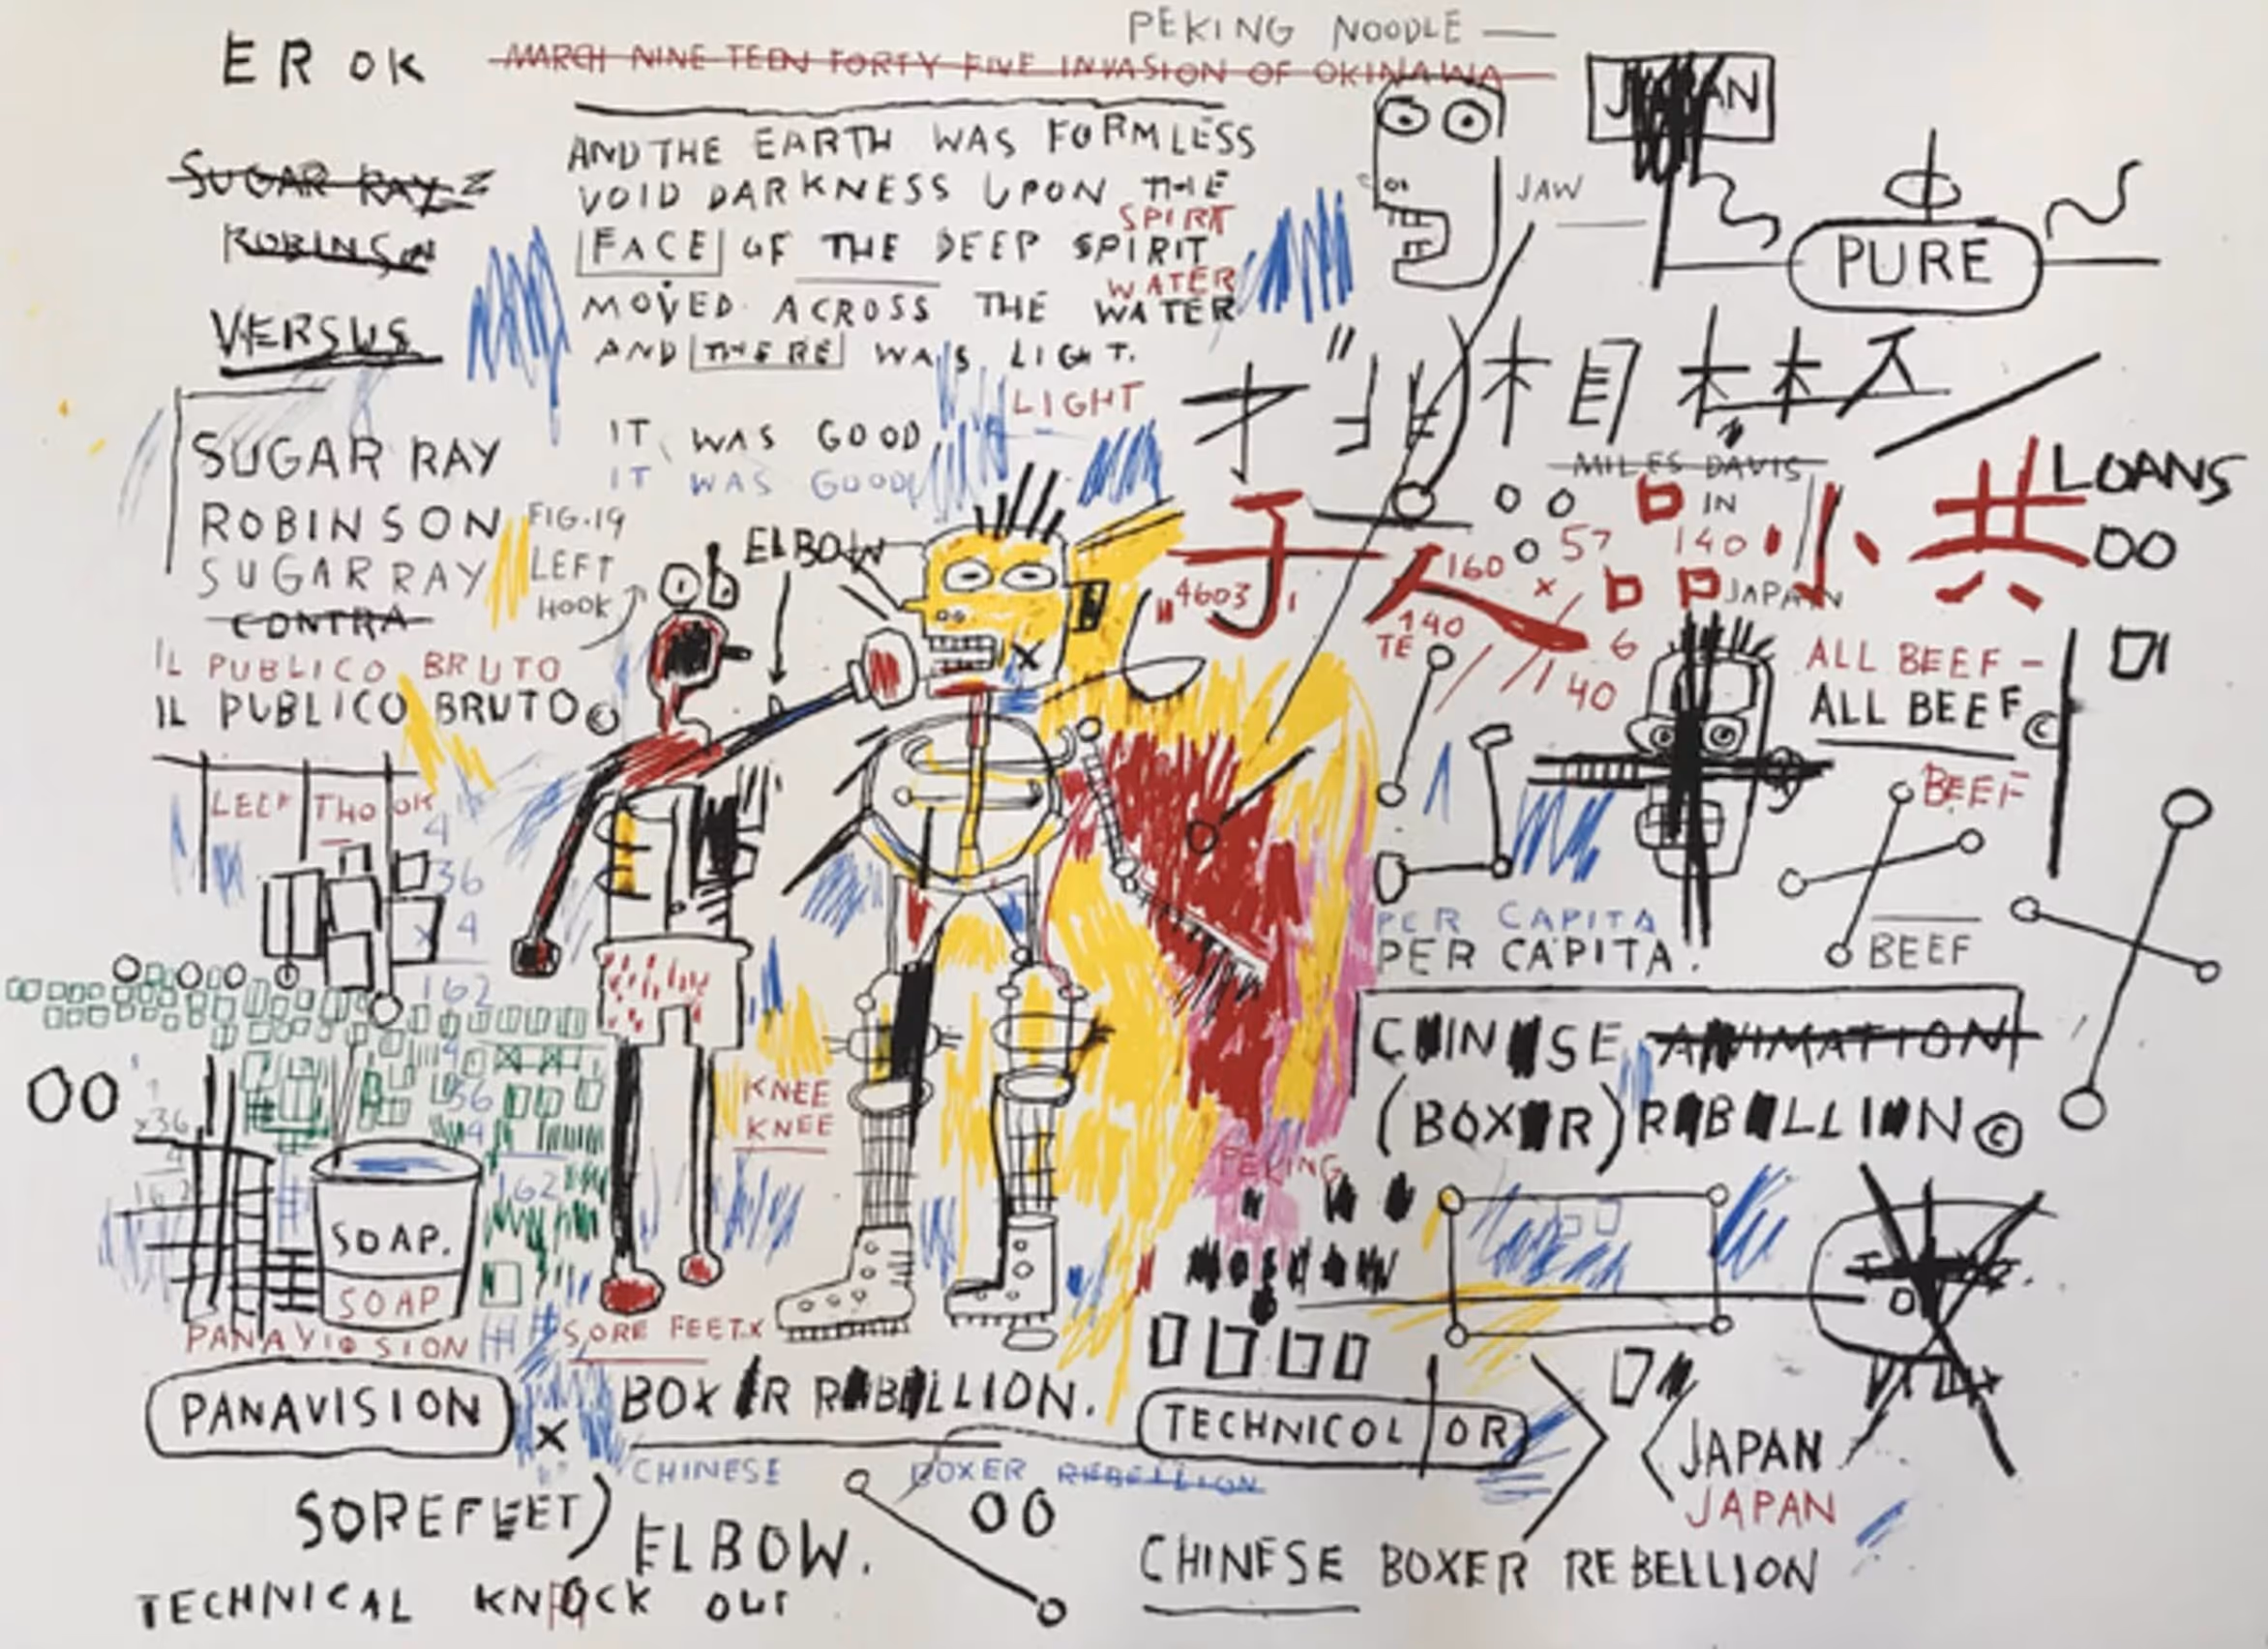 PEKING NOODLE
ER OK
MARCH NINE TEEN FORTY FIVE INVASION OF OKINAWA
JAPAN
AND THE EARTH WAS FORMLESS
VOID DARKNESS UPON THE
SPIRIT
FACE OF THE DEEP SPIRIT
WATER
MOVED ACROSS THE WATER
AND THERE WAS LIGHT.
LIGHT
IT WAS GOOD
IT WAS GOOD
SUGAR RAY
ROBINSON
VERSUS
JAW
PURE
SUGAR RAY
ROBINSON
SUGAR RAY
CONTRA
IL PUBLICO BRUTO
IL PUBLICO BRUTO©
FIG.19
LEFT
HOOK
ELBOW
木目木木
MILES DAVIS
IN
LOANS
OO
子人小共
57
140
160
"4603"
140
TE
6
140
JAPAN
ALL BEEF-
ALL BEEF©
BEEF
BEEF
LEFT HOOK
4
36
x 4
162
PER CAPITA
PER CAPITA.
CHINESE ANIMATION
(BOXER) REBELLION©
OO
x36
4
162
36
4
162
KNEE
KNEE
PEKING
MOSCOW
SOAP.
SOAP
PANAVISION
SORE FEET.X
PANAVISION
X
BOXER REBELLION.
TECHNICOLOR
CHINESE BOXER REBELLION
JAPAN
JAPAN
SOREFEET)
ELBOW.
OO
CHINESE BOXER REBELLION
TECHNICAL KNOCK OUT